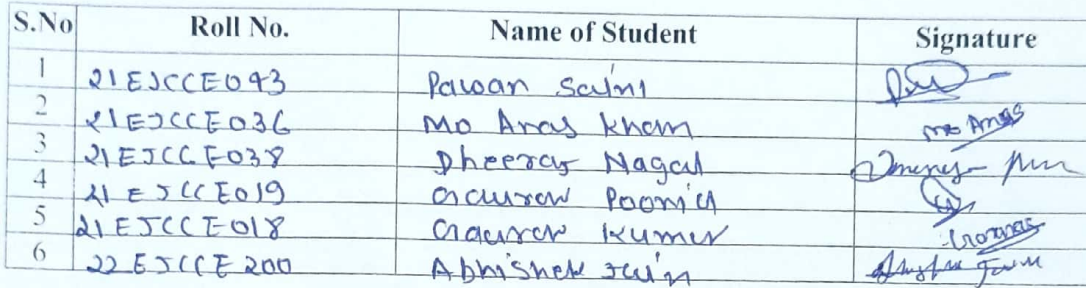 S.No Roll No. Name of Student Signature
1 21EJCCE043 Pawan Saini
2 21EJCCE036 Mo Anas Khan Mo Anas
3 21EJCCE038 Dheeraj Nagal
4 21EJCCE019 Gaurav Poonia
5 21EJCCE018 Gaurav Kumar
6 22EJCCE200 Abhishek Jain